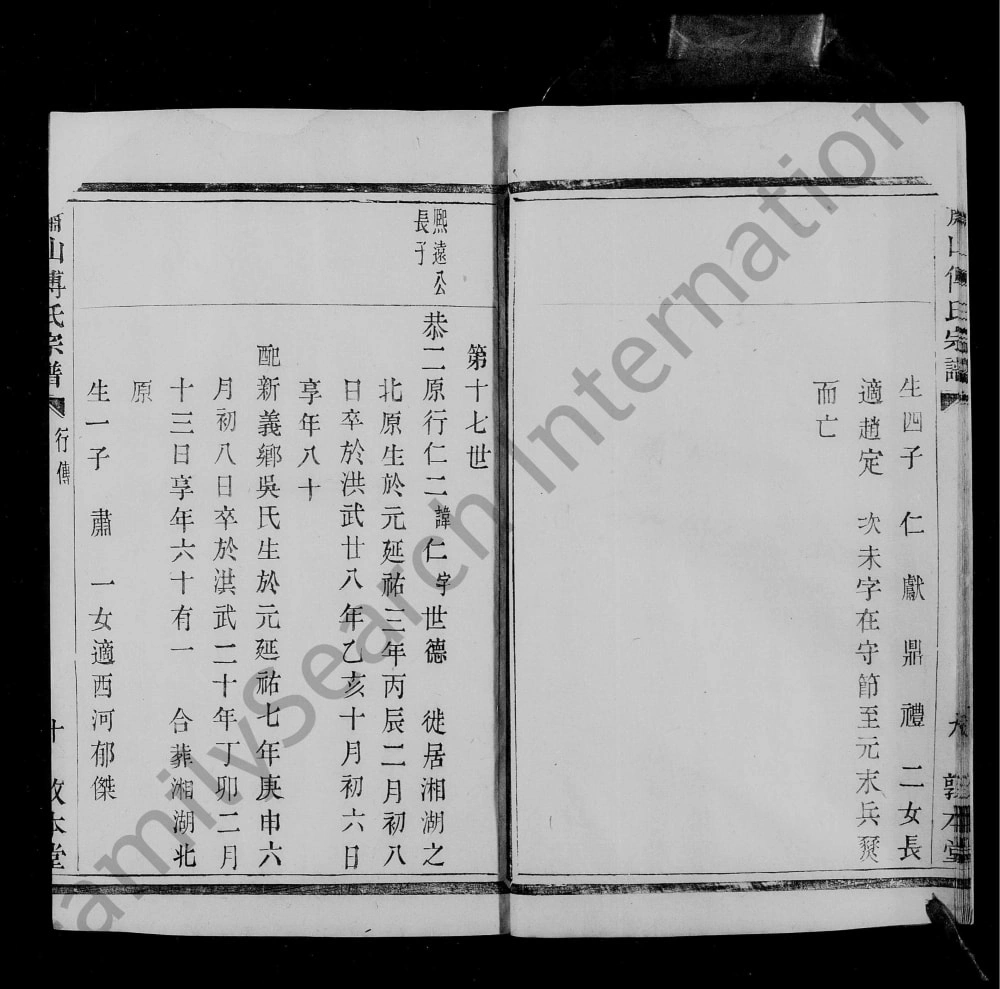 生四子 仁 獻 鼎 禮 二女長
適趙定 次未字在守節至元末兵燹
而亡
第十七世
熙遠公
長子
恭二原行仁二諱仁字世德 徙居湘湖之
北原生於元延祐三年丙辰二月初八
日卒於洪武廿八年乙亥十月初六日
享年八十
配新義鄉吳氏生於元延祐七年庚申六
月初八日卒於洪武二十年丁卯二月
十三日享年六十有一 合葬湘湖北
原
生一子 肅 一女適西河郁傑
山傅氏宗譜
行傳
十
敦本堂
FamilySearch International